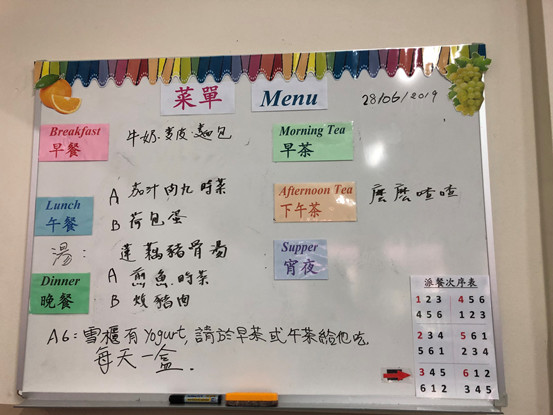 菜單 Menu 28/06/2019
Breakfast
早餐
牛奶.麥皮.麵包
Morning Tea
早茶
Lunch
午餐
A 茄汁肉丸 時菜
B 荷包蛋
Afternoon Tea
下午茶
麼麼喳喳
湯: 蓮藕豬骨湯
Supper
宵夜
Dinner
晚餐
A 煎魚 時菜
B 燒豬肉
A6:雪櫃有Yogurt,請於早茶或午茶給他吃,
每天一盒.
派餐次序表
1 2 3 4 5 6
4 5 6 1 2 3
2 3 4 5 6 1
5 6 1 2 3 4
3 4 5 6 1 2
6 1 2 3 4 5